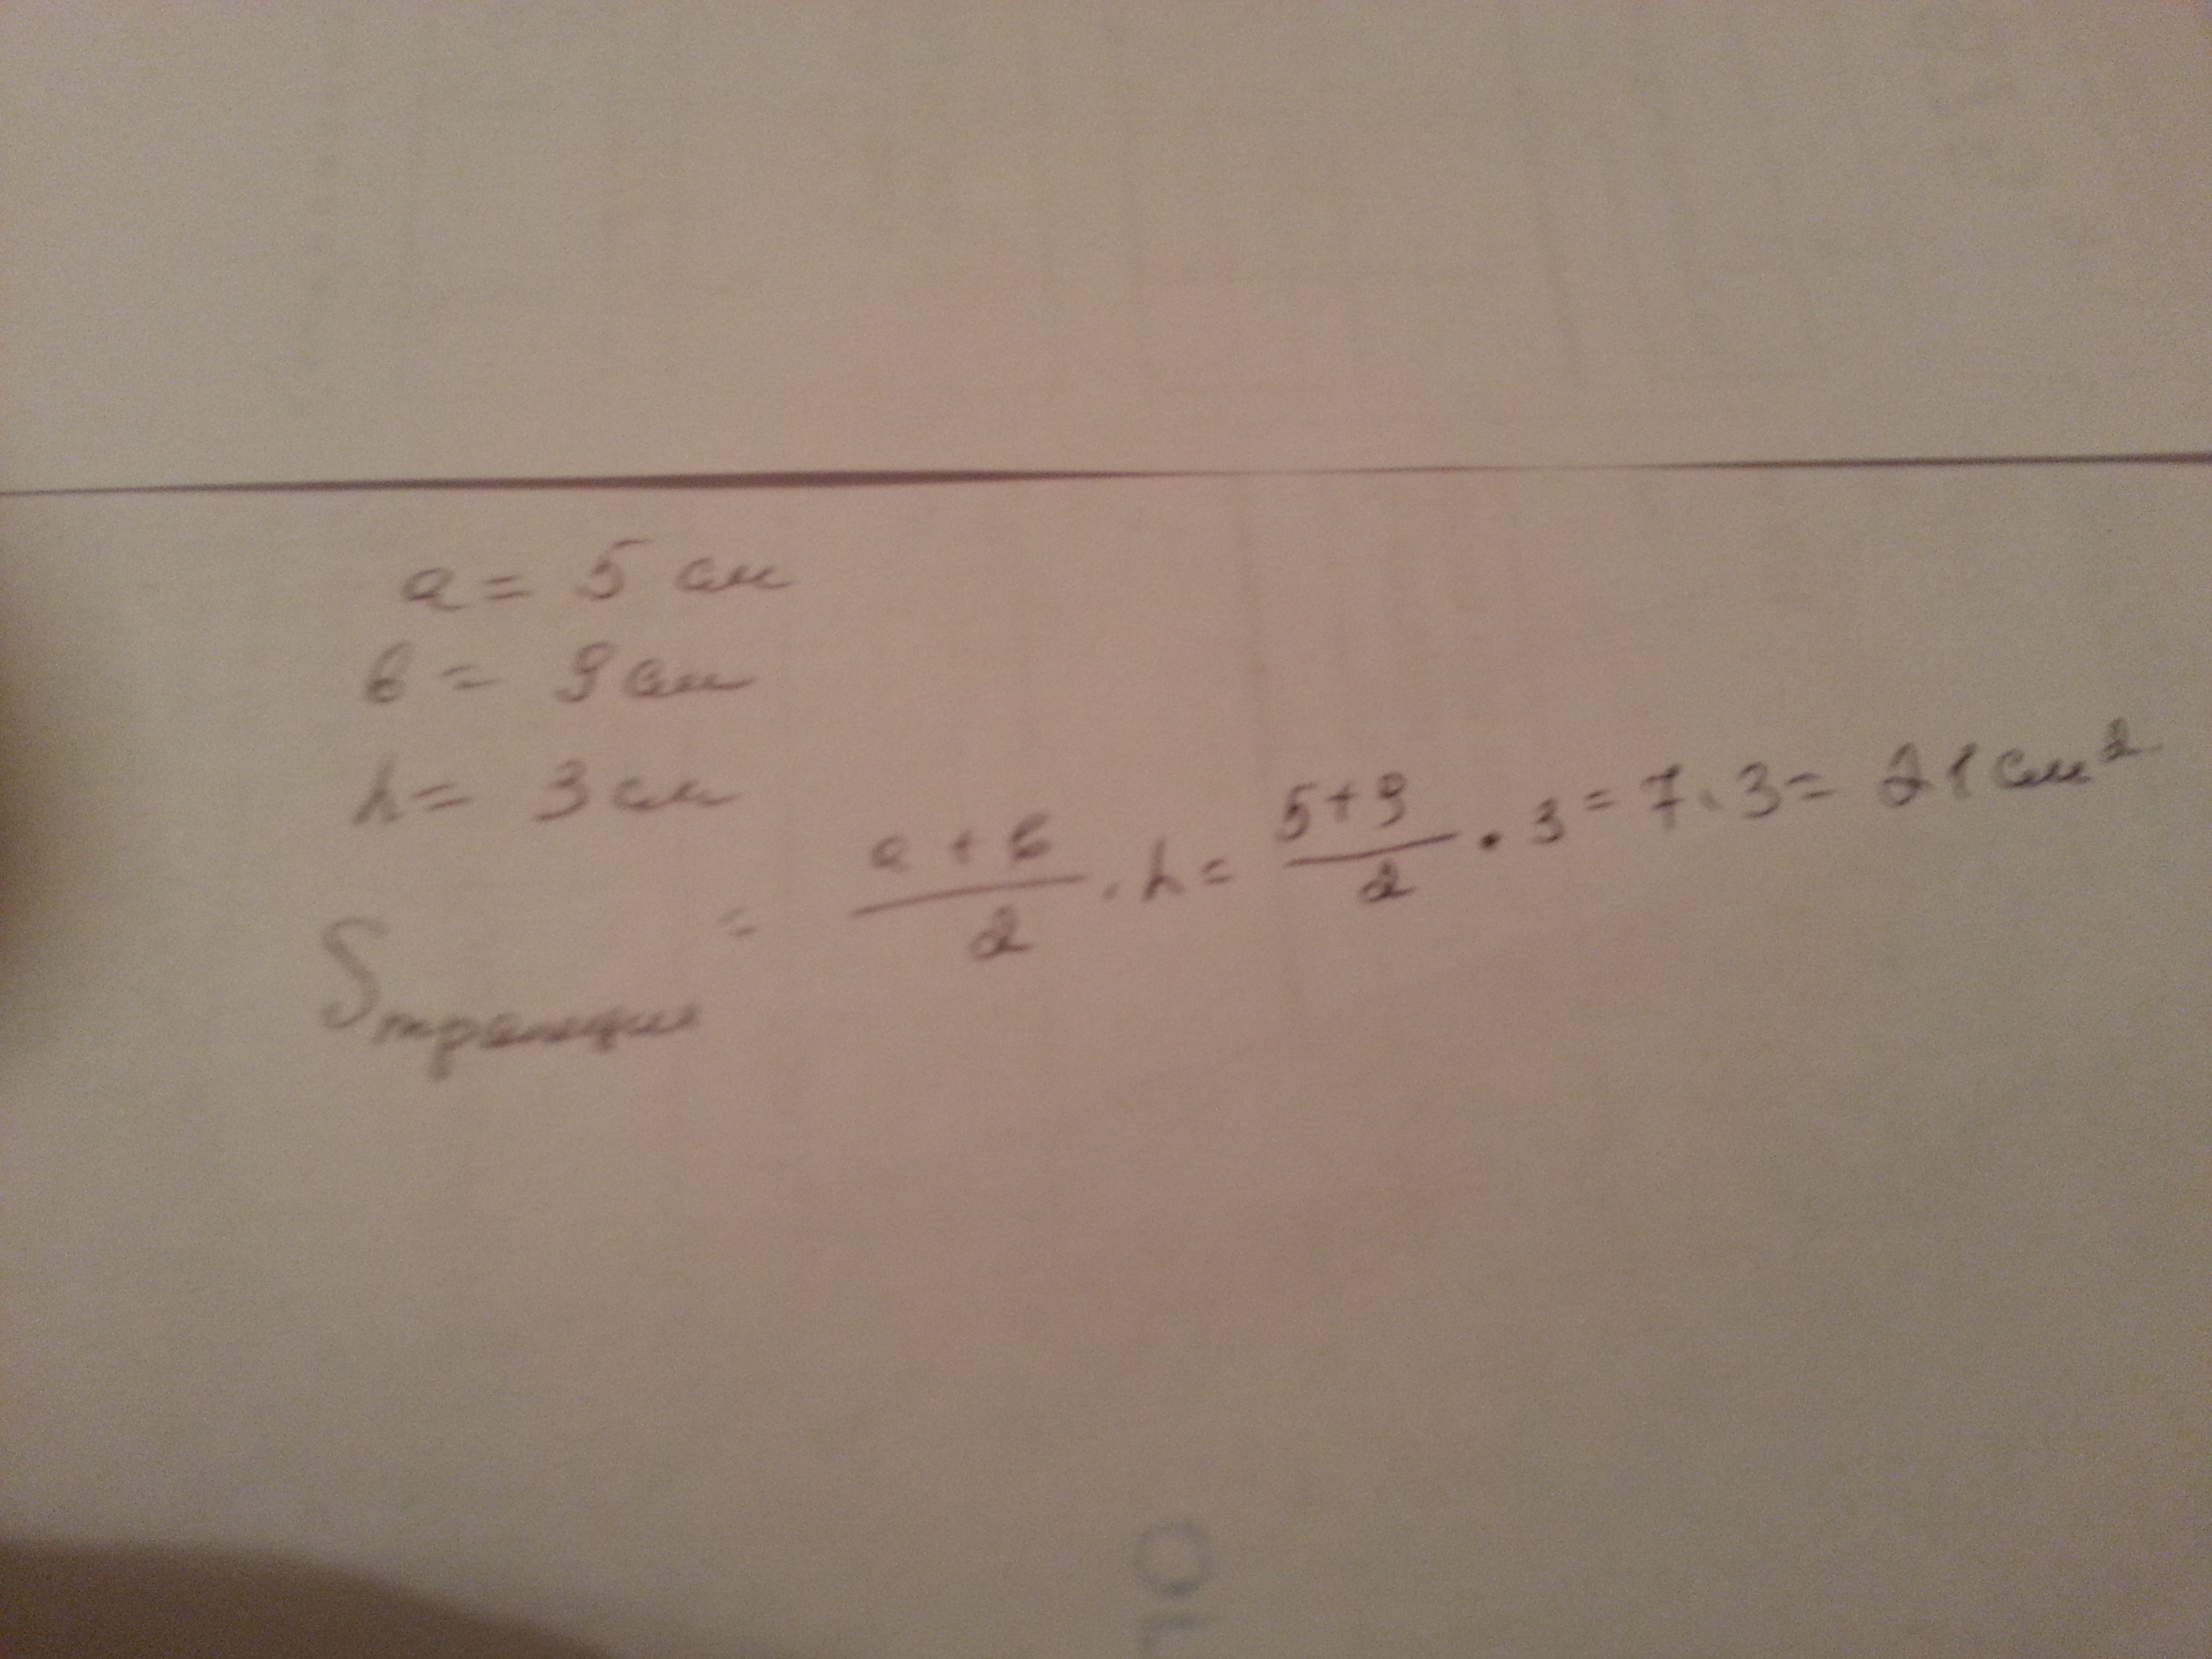 a = 5 см
в = 9 см
h = 3 см
Sтрапеции = a + в / 2 · h = 5 + 9 / 2 · 3 = 7 · 3 = 21 см²